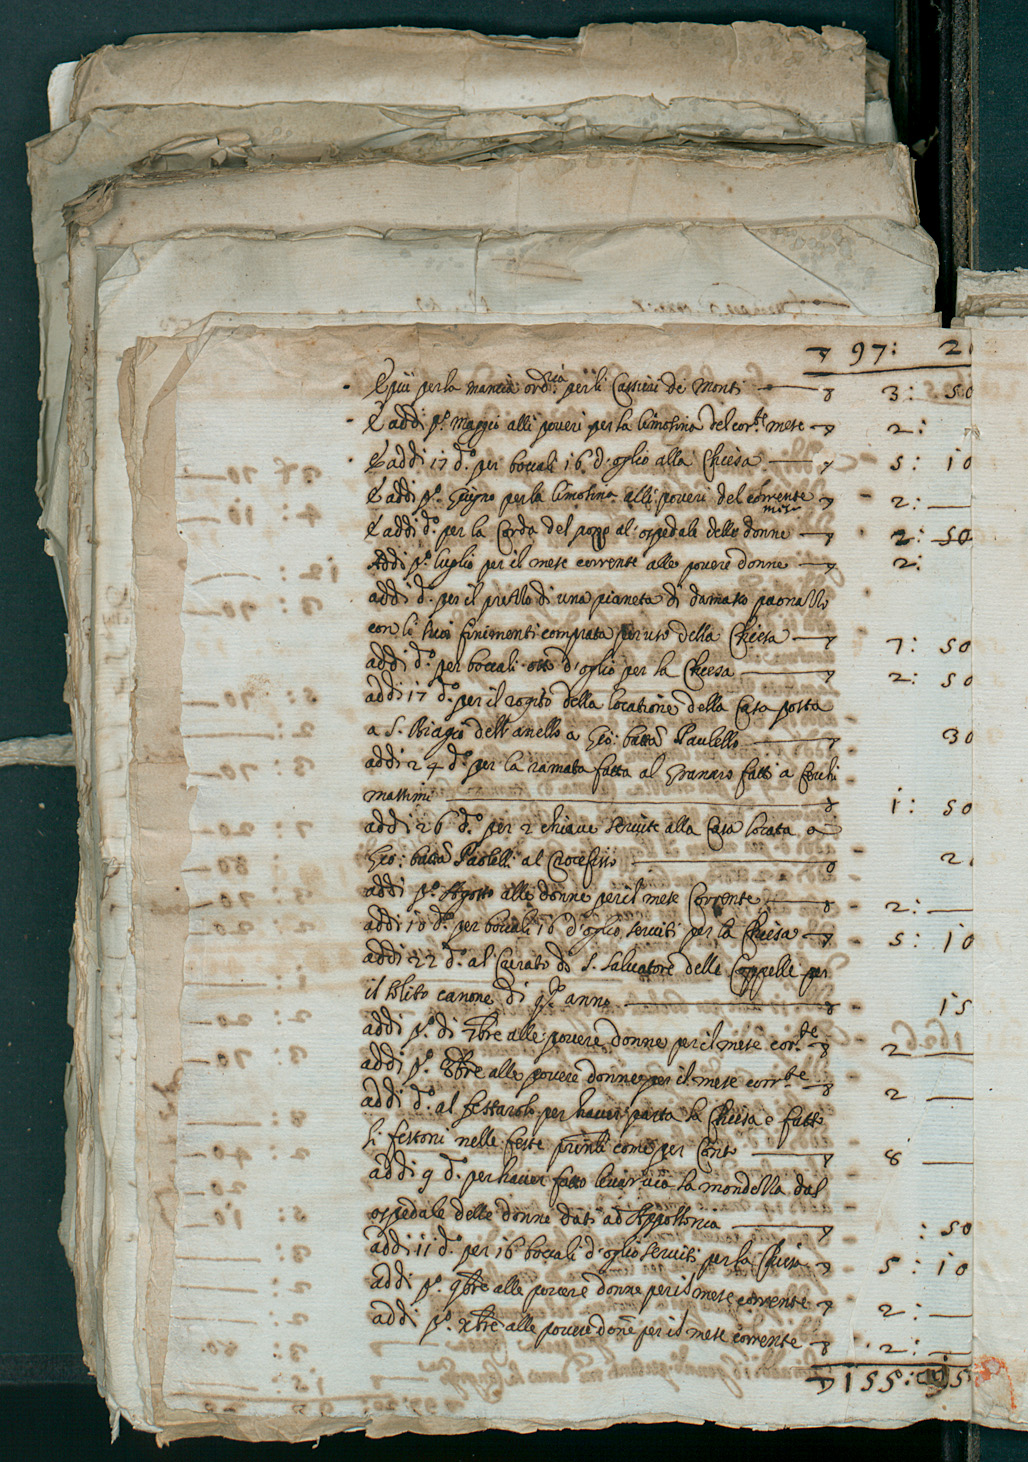 97: 2
E più per la mancia ord.ria per li Cassieri de Monti — 3: 50
E addi p.o maggio alli poveri per la limosina del corr.te mese 2:
E addi 17 d.o per boccali 16 d'oglio alla Chiesa — 5: 10
E addi p.o Giugno per la limosina alli poveri del corrente mese 2: —
E addi d.o per la Corda del pozzo al ospedale delle donne — 2: 50
Addi p.o luglio per il mese corrente alle povere donne — 2:
addi d.o per il prezzo di una pianeta di damasco paonazzo
con li suoi finimenti comprata per uso della Chiesa — 7: 50
addi d.o per boccali otto d'oglio per la Chiesa — 2: 50
addi 17 d.o per il rogito della locatione della Casa posta
a S. Biagio dell'anello a Gio: batta Paulello — 30
addi 24 d.o per la ramata fatta al Granaro fatti a
massimi — 1: 50
addi 26 d.o per 2 chiave servite alla Casa locata a
Gio: batta Paolelli al Crocefisso — 2
addi p.o Agosto alle donne per il mese Corrente — 2: —
addi 10 d.o per boccali 16 d'oglio serviti per la Chiesa — 5: 10
addi 22 d.o al Curato di S. Salvatore delle Coppelle per
il solito canone di q.to anno — 15
addi p.o di 7bre alle povere donne per il mese corr.te 2 —
addi p.o 8bre alle povere donne per il mese corr.te 2 —
addi d.o al festarolo per haver parata la Chiesa e fatto
li festoni nelle feste prinli come per Conto — 8 —
addi 9 d.o per haver fatto levar via la mondezza dal
ospedale delle donne dati ad Appollonia — : 50
addi 11 d.o per 16 boccali d'oglio serviti per la Chiesa 5: 10
addi p.o 9bre alle povere donne per il mese corrente 2: —
addi p.o xbre alle povere donne per il mese corrente 2: —
155: 5